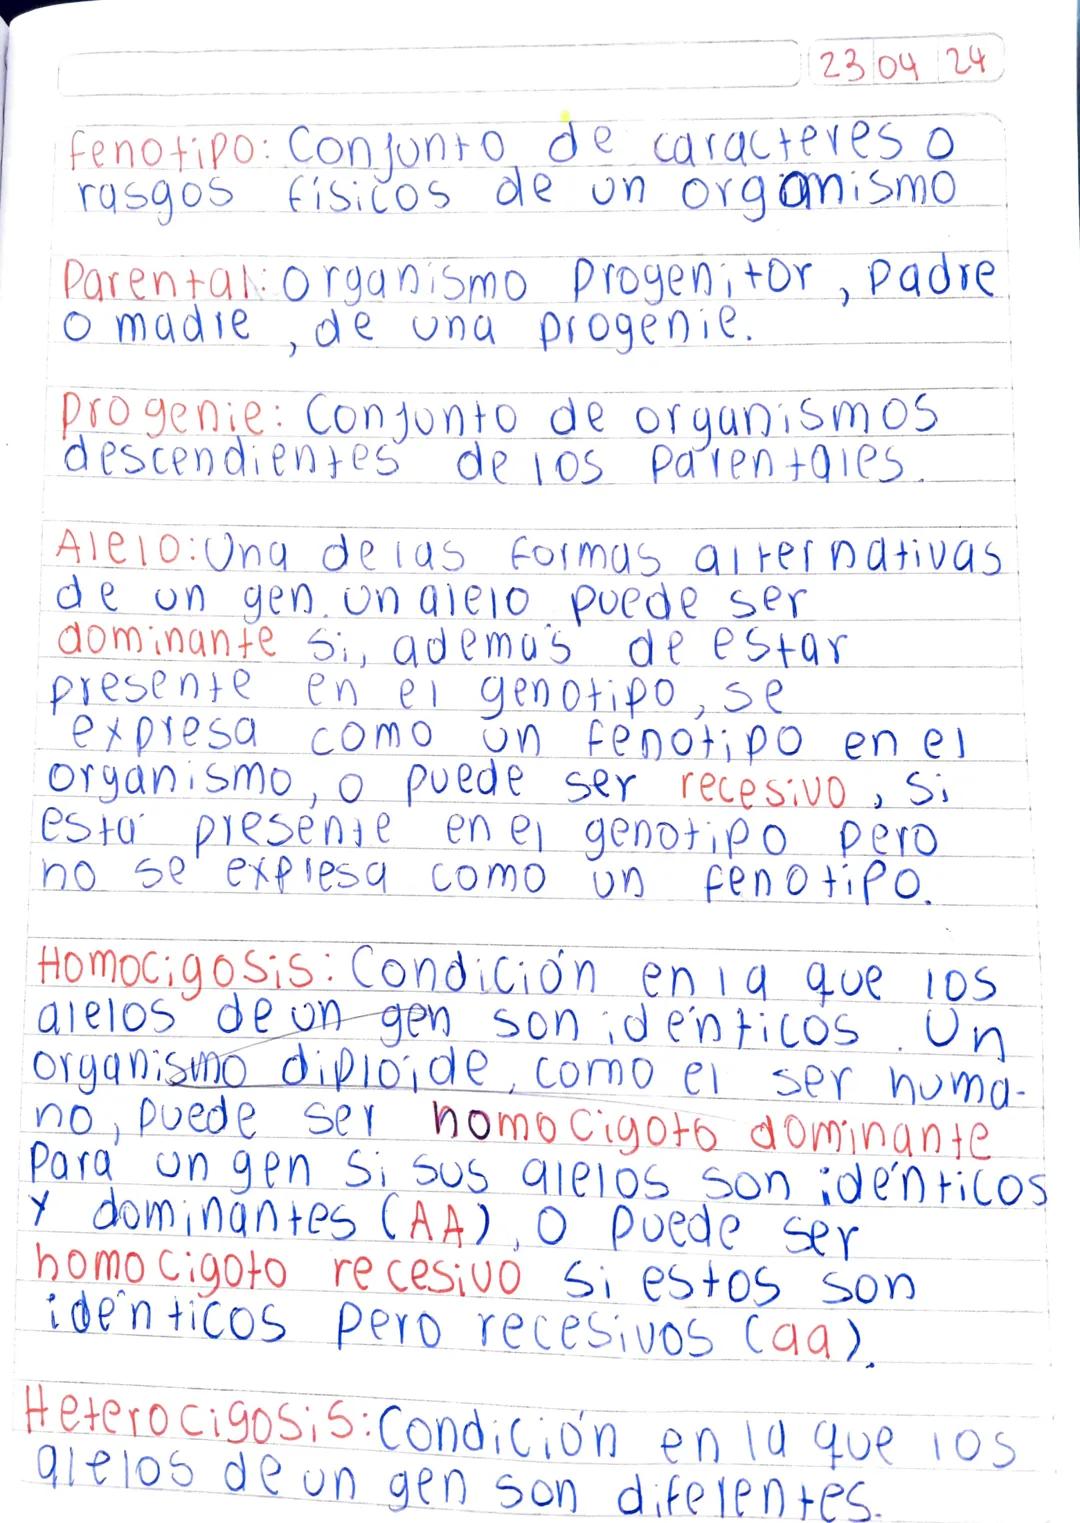 23 04 24
fenotipo: Conjunto de caracteres o
rasgos físicos de un organismo
Parental: organismo Progenitor, padre
o madre, de una progenie.
Progenie: Conjunto de organismos
descendientes de los parentales.
Alelo: Una de las formas alternativas
de un gen. un alelo puede ser
dominante si, además de estar
presente en el genotipo, se
expresa como un fenotipo en el
organismo, o puede ser recesivo, si
está presente en el genotipo pero
no se expresa como un fenotipo.
Homocigosis: Condición en la que los
alelos de un gen son idénticos. Un
organismo diploide, como el ser huma-
no, puede ser homocigoto dominante
Para un gen si sus alelos son idénticos
y dominantes (AA), o puede ser
homocigoto recesivo si estos son
idénticos pero recesivos (aa).
Heterocigosis: Condición en la que los
alelos de un gen son diferentes.